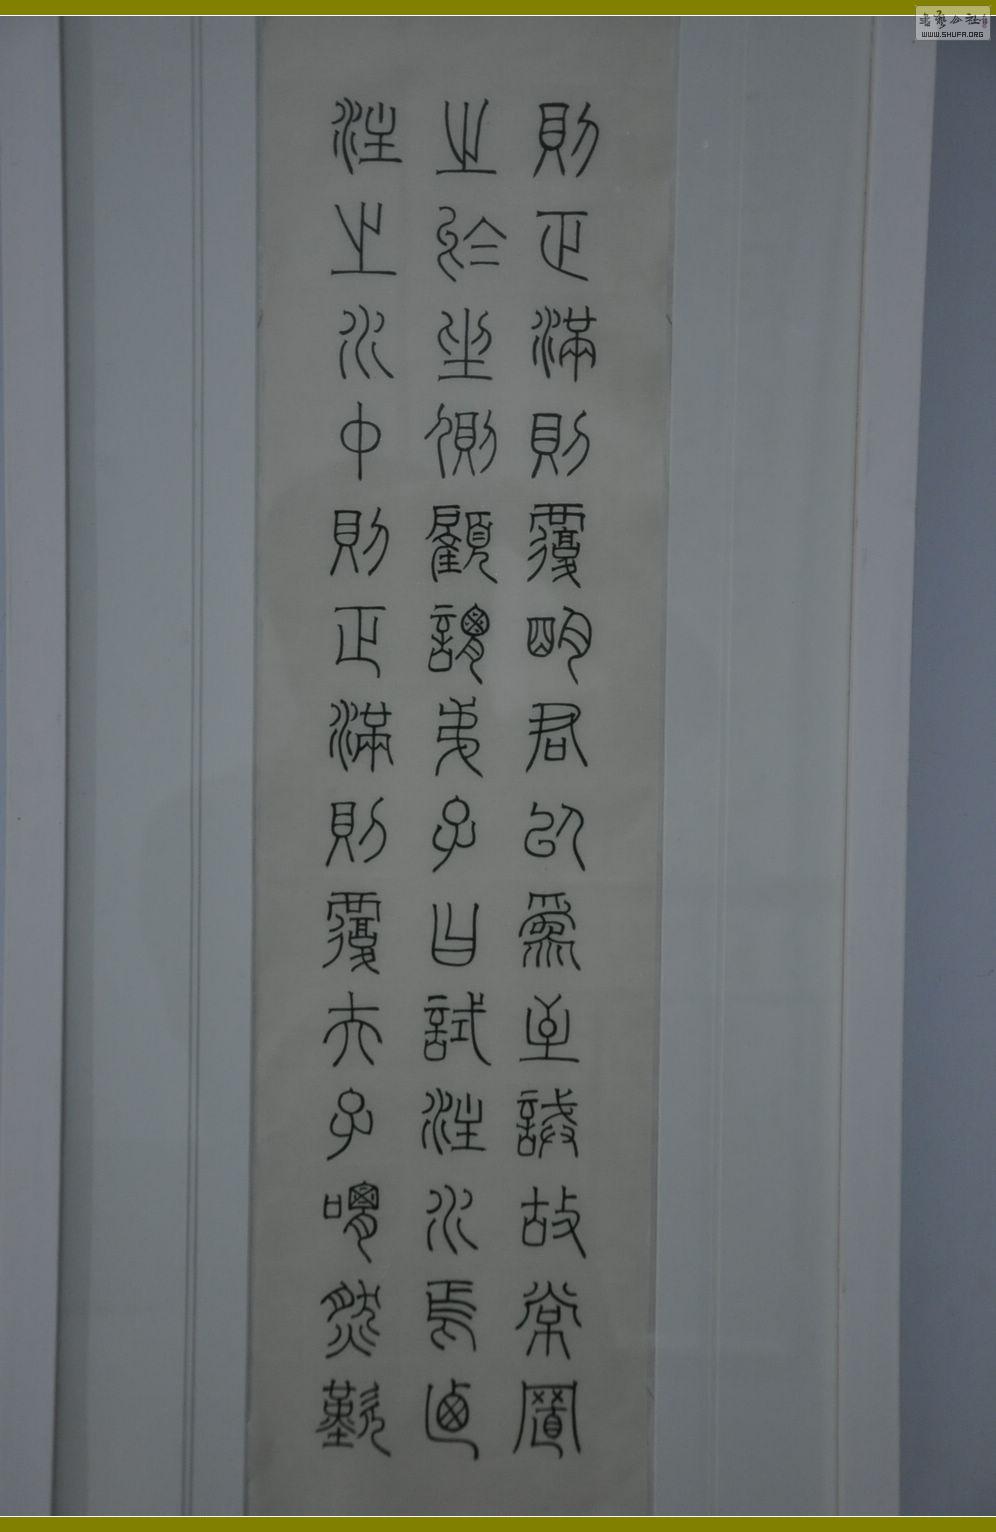 則正滿則覆明君以為至誡故常置
之於坐側顧謂弟子曰試注水焉迺
注之水中則正滿則覆夫子喟然歎
書藝公社
WWW.SHUFA.ORG